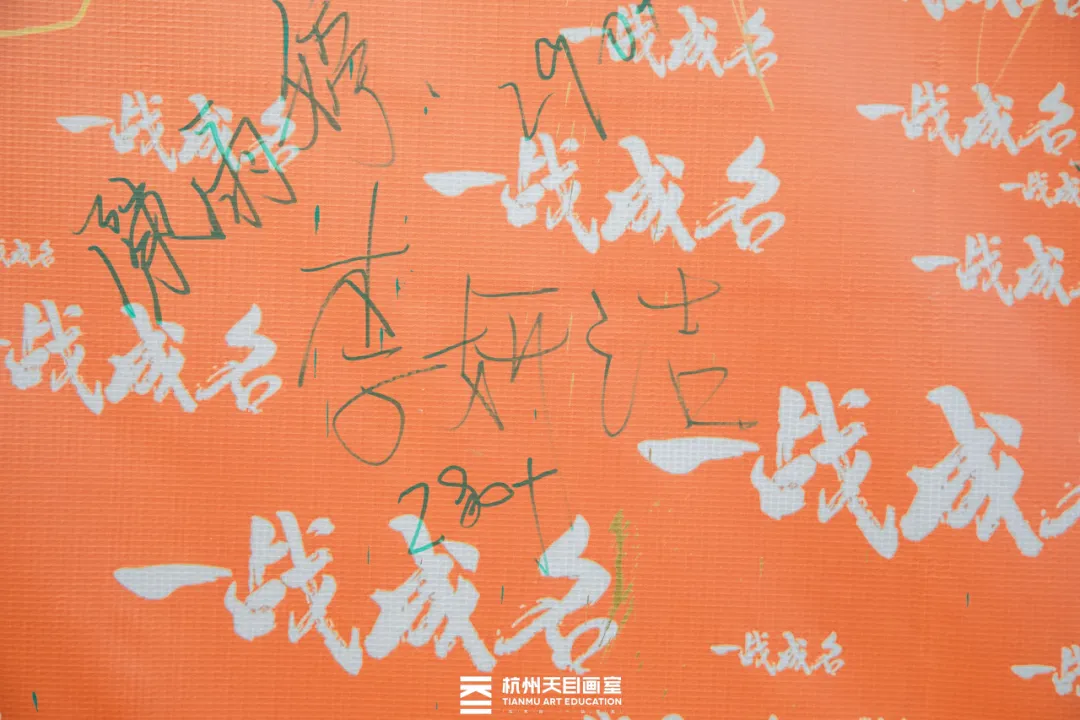 290
一战成名
一战成名
一战成名
一战成名
一战成名
李妍洁
一战成名
一战成名
280+
一战成名
一战成名
杭州天目画室
TIANMU ART EDUCATION